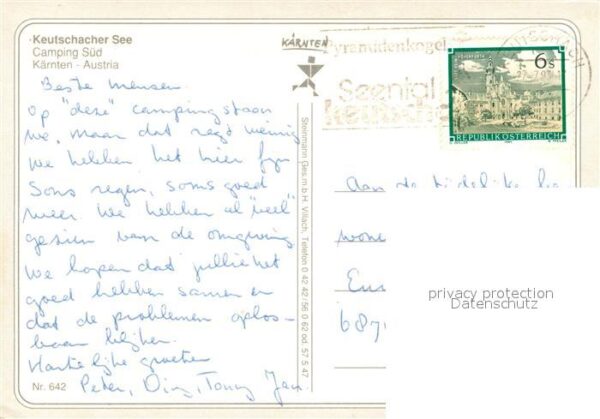 Keutschacher See
Camping Süd
Kärnten - Austria
Beste mensen.
Op "deze" camping staan
we, maar dat zegt weinig
We hebben het hier fijn
Soms regen, soms goed
weer. We hebben al "veel"
gezien van de omgeving
We hopen dat jullie het
goed hebben samen en
dat de problemen oplos-
baar blijken.
Hartelijke groeten
Peter, Diny, Tonny Jan.
Nr. 642
Steinmann Ges.m.b.H. Villach, Telefon 0 42 42/56 0 62 od. 57 5 47
KÄRNTEN
Pyramidenkogel
6s
REPUBLIK ÖSTERREICH
Aan de
privacy protection
Datenschutz